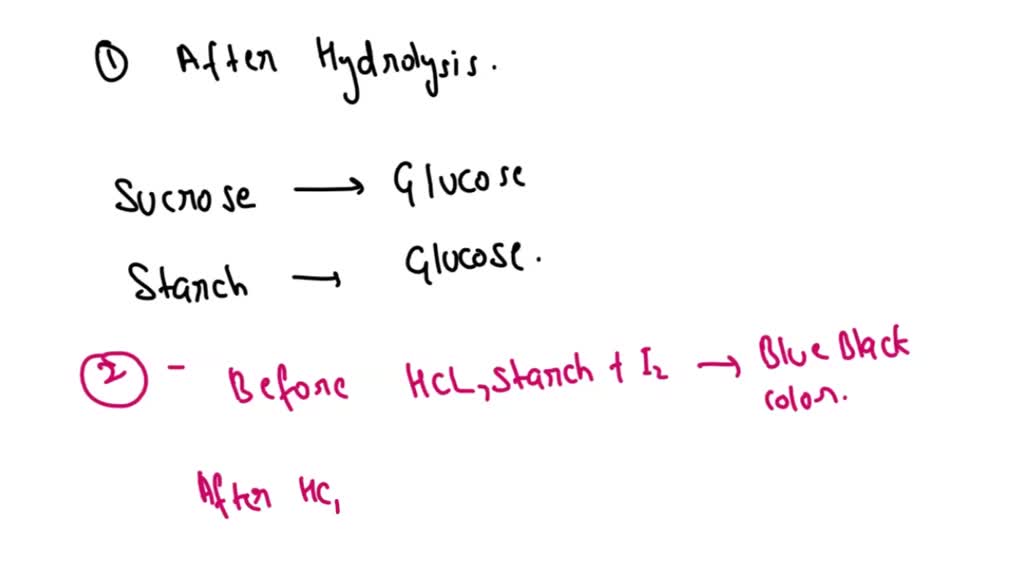 ① After Hydrolysis.
Sucrose → Glucose
Starch → Glucose.
② - Before HCL, Starch + I₂ → Blue Black
color.
After HC,